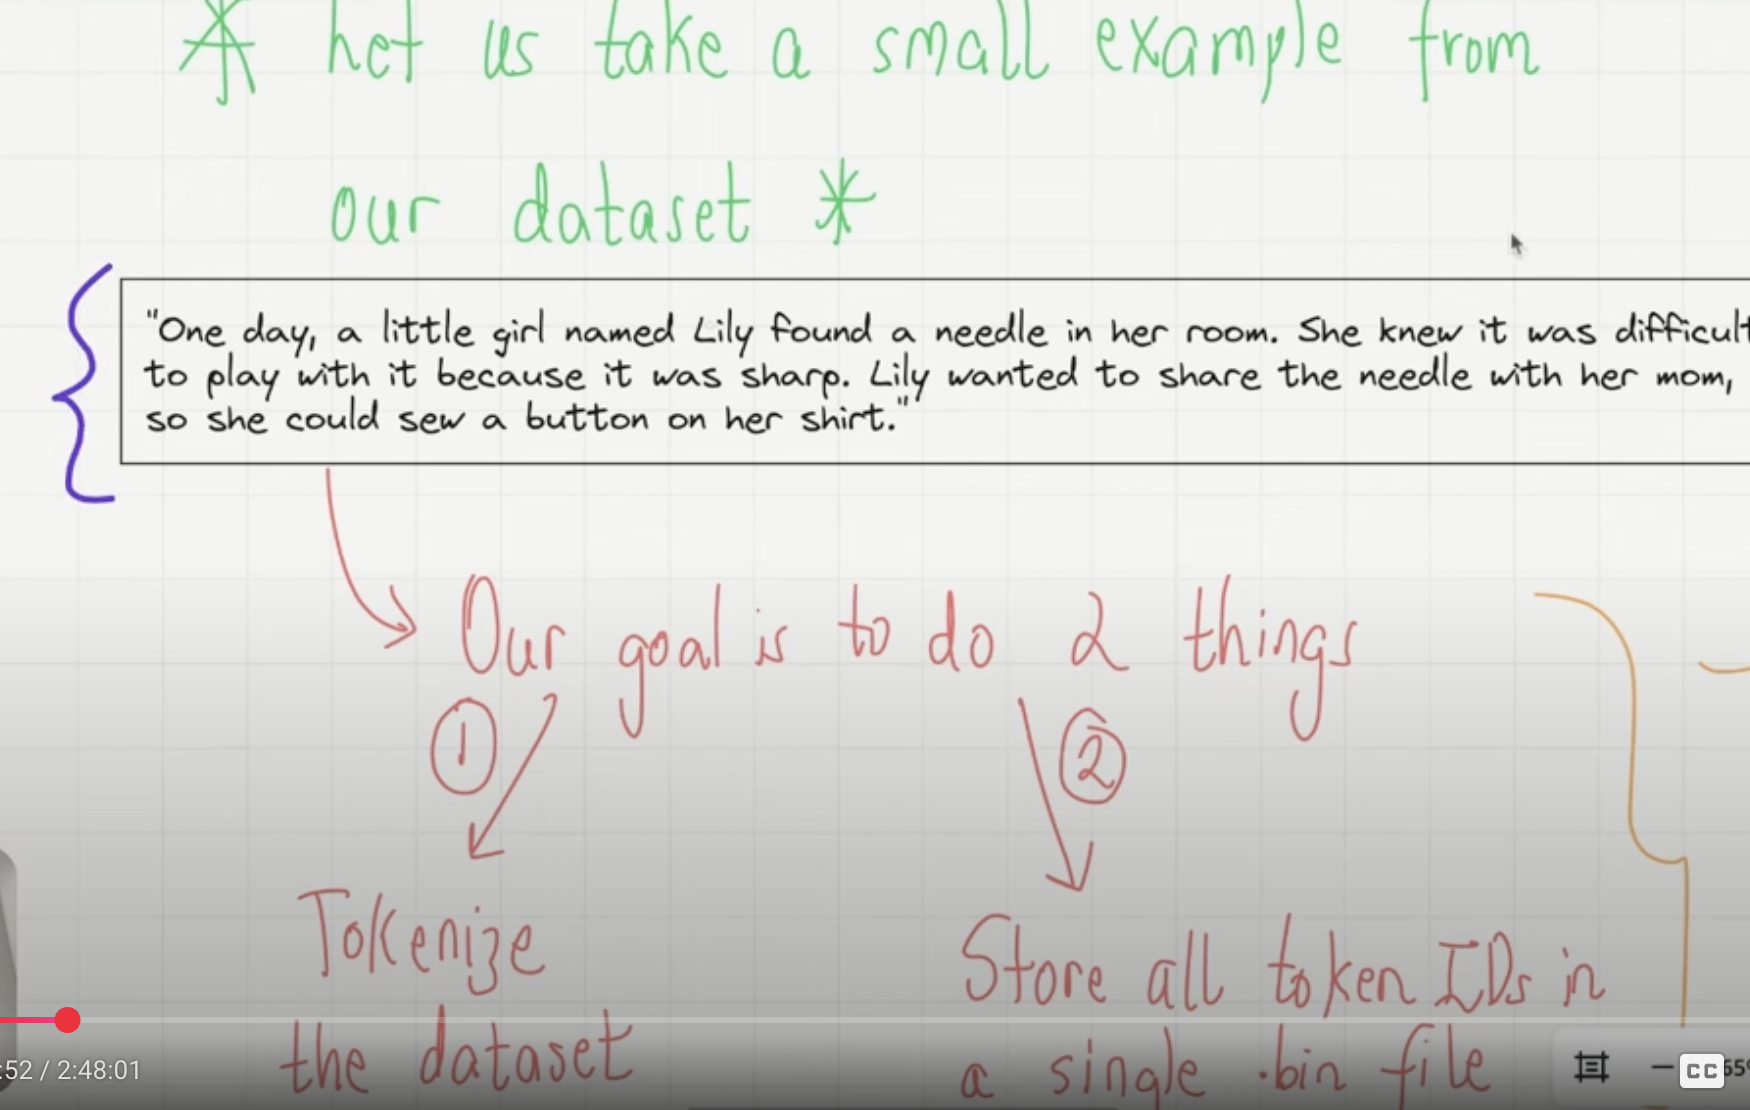 * Let us take a small example from
our dataset *
"One day, a little girl named Lily found a needle in her room. She knew it was difficult
to play with it because it was sharp. Lily wanted to share the needle with her mom,
so she could sew a button on her shirt."
Our goal is to do 2 things
1
2
Tokenize
the dataset
Store all token IDs in
a single .bin file
:52 / 2:48:01
CC